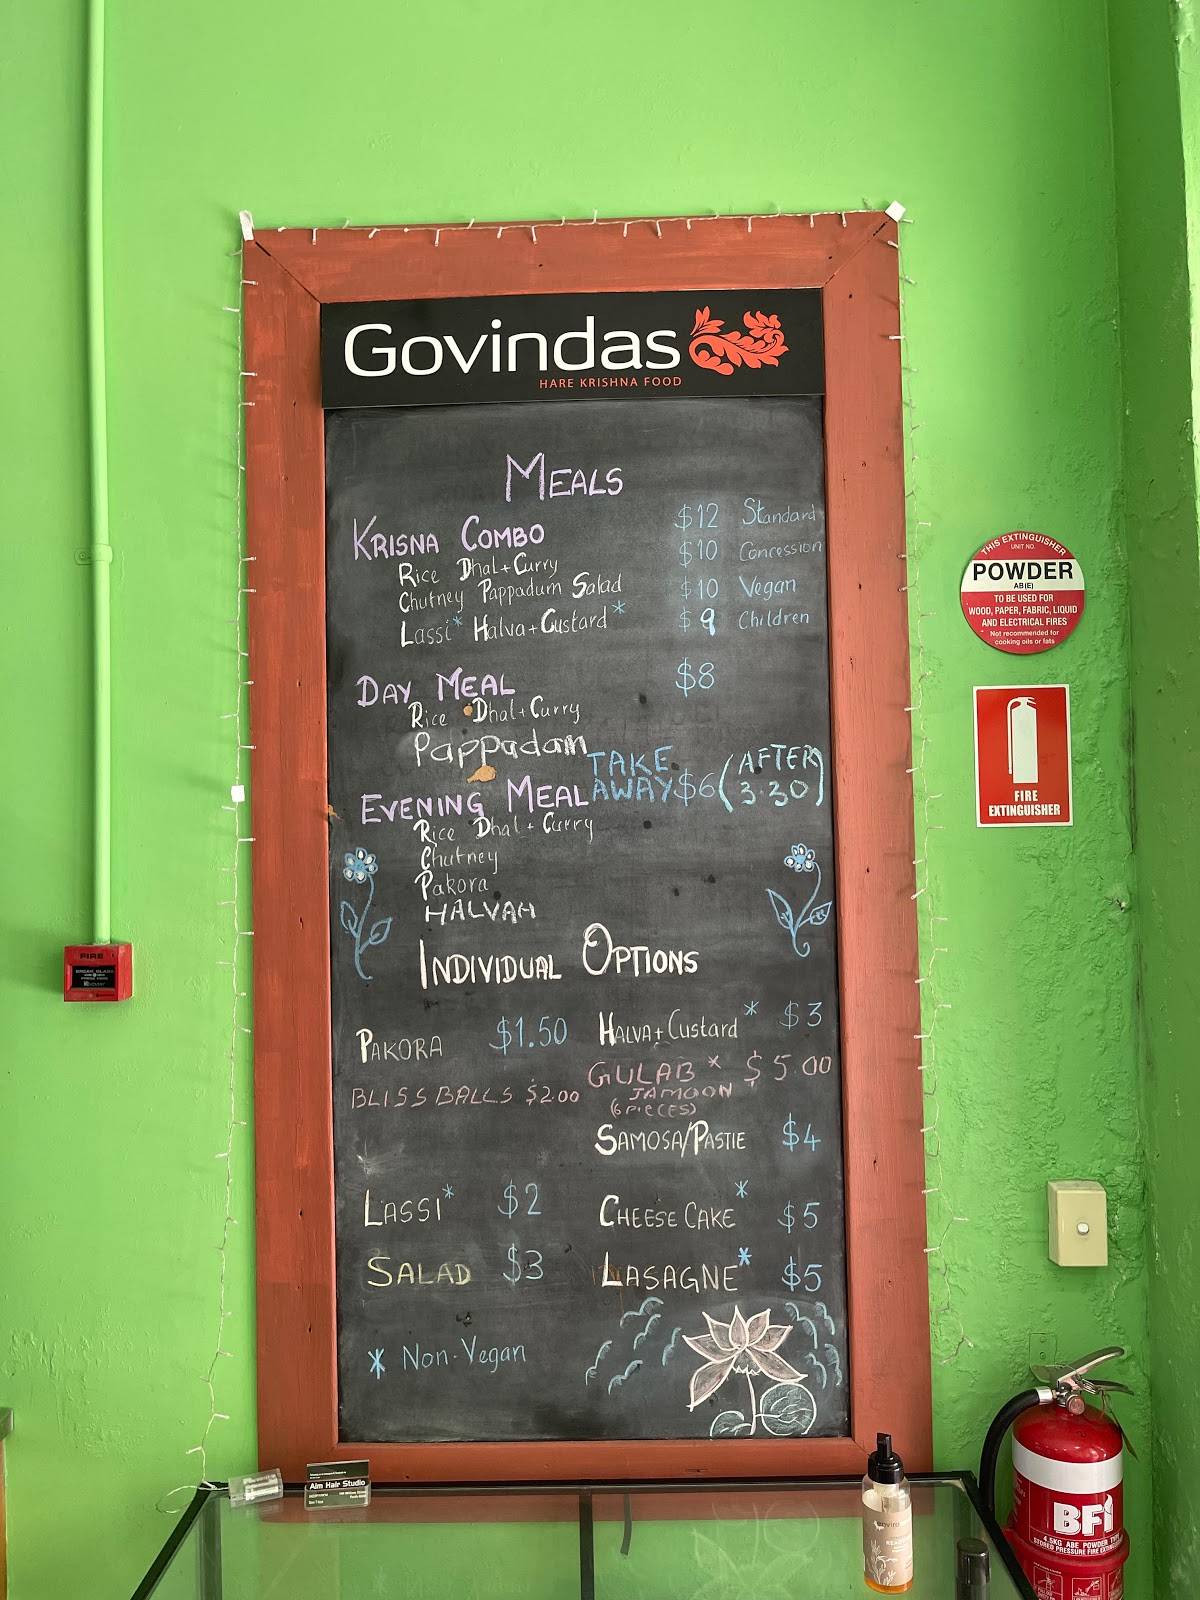 Govindas
HARE KRISHNA FOOD
MEALS
KRISNA COMBO
Rice Dhal+Curry
Chutney Pappadum Salad
Lassi* Halva+Custard*
$12 Standard
$10 Concession
$10 Vegan
$9 Children
DAY MEAL $8
Rice Dhal+Curry
Pappadam
TAKE AWAY $6 (AFTER 3.30)
EVENING MEAL
Rice Dhal+Curry
Chutney
Pakora
HALVAH
INDIVIDUAL OPTIONS
PAKORA $1.50
HALVA+Custard* $3
BLISS BALLS $2.00
GULAB* $5.00
JAMOON
(6 PIECES)
SAMOSA/PASTIE $4
LASSI* $2
CHEESE CAKE* $5
SALAD $3
LASAGNE* $5
* Non-Vegan
THIS EXTINGUISHER
UNIT NO.
POWDER
AB(E)
TO BE USED FOR
WOOD, PAPER, FABRIC, LIQUID
AND ELECTRICAL FIRES
Not recommended for
cooking oils or fats
FIRE
EXTINGUISHER
FIRE
BREAK GLASS
Aim Hair Studio
enviro
BFi
4.5KG ABE POWDER TYPE
STORED PRESSURE FIRE